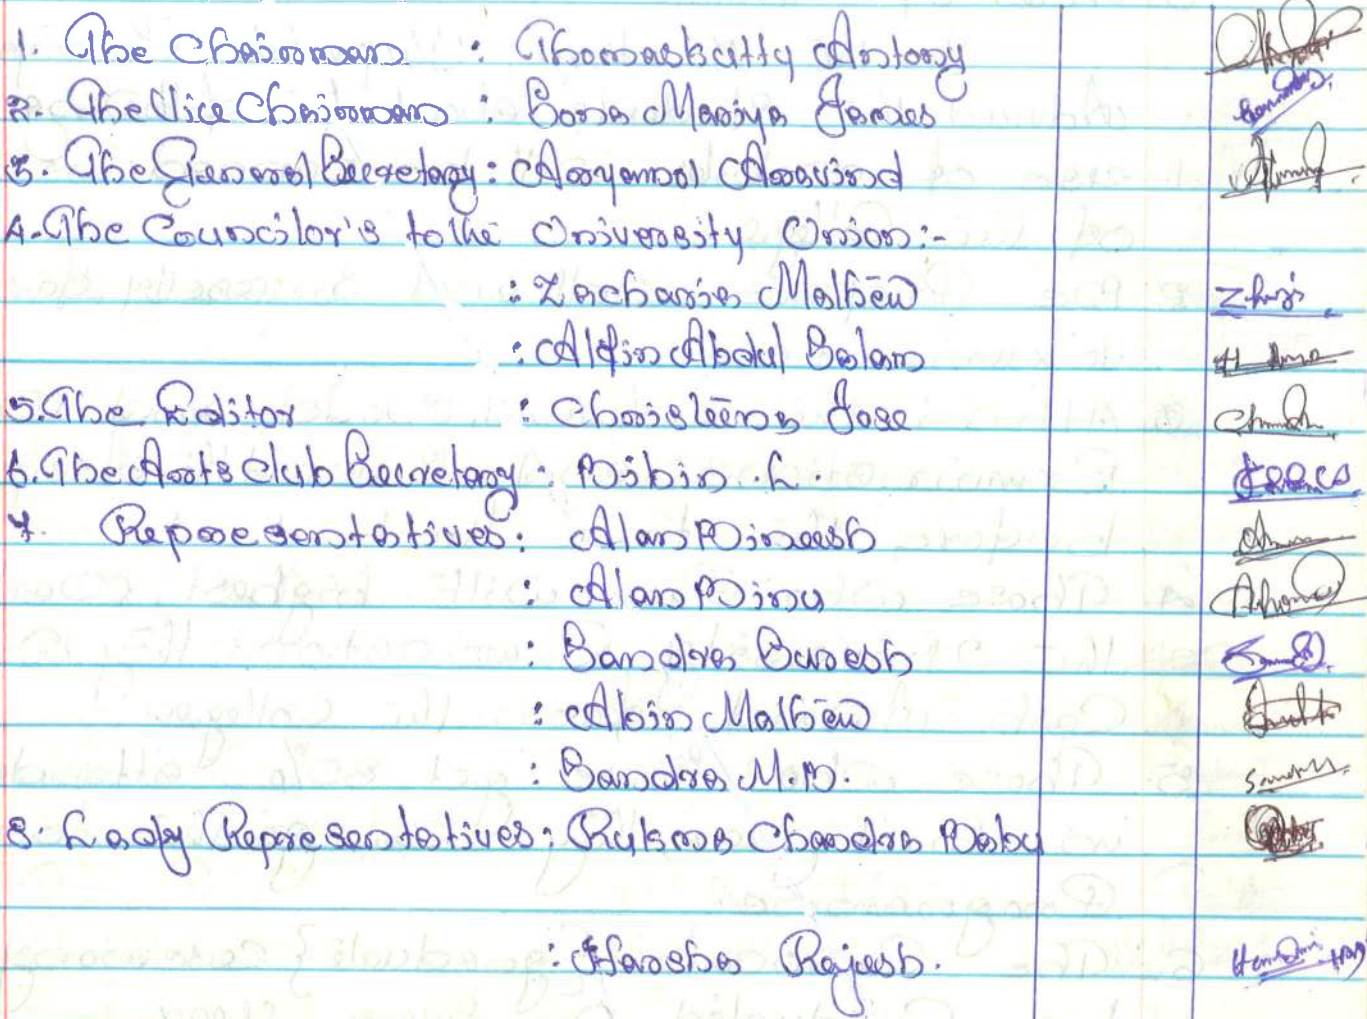 1. The Chairman : Thomaskutty Antony
2. The Vice Chairman : Sona Mariya James
3. The General Secretary : Aryamol Aravind
4. The Councilor's to the University Union :-
: Zacharia Mathew
: Alfin Abdul Salam
5. The Editor : Christeena Jose
6. The Arts Club Secretary : Bibin . L .
7. Representatives : Alan Bineesh
: Alan Binu
: Sandra Suresh
: Abin Mathew
: Sandra M.B.
8. Lady Representatives : Rukma Chandra Babu
: Harsha Rajesh .